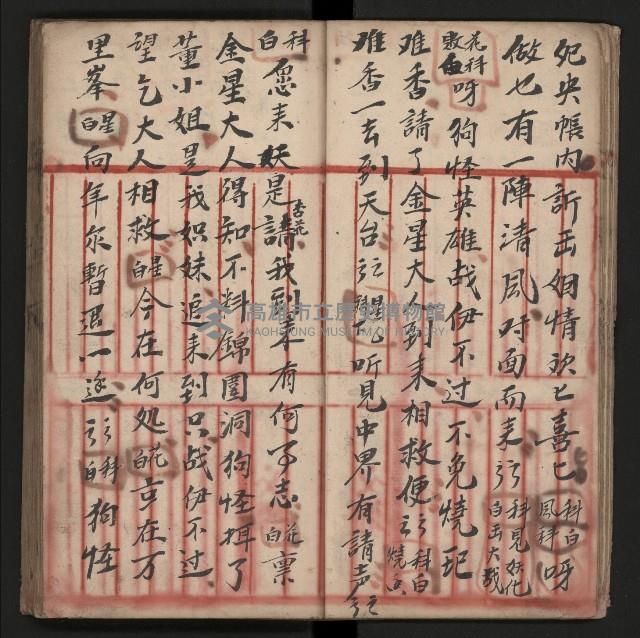 央帳内訴出姐情欢匕喜匕科白風科呀
做乜有一陣清風对面而来行科見妖化白出大战
花科敗白呀狗怪英雄战伊不过不免燒
难香請了金星大人到来相救便了科白燒香
难香一去到天台行科听見中界有請声
科白愿来妖是請杏花我到來有何事志花白禀
金星大人得知不料錦囯洞狗怪拑了
董小姐是我姐妹追来到只战伊不过
望乞大人相救白星今在何処白花京在万
里峯白星向年尔暫退一逩行科白狗怪
高雄市立歷史博物館
KAOHSIUNG MUSEUM OF HISTORY